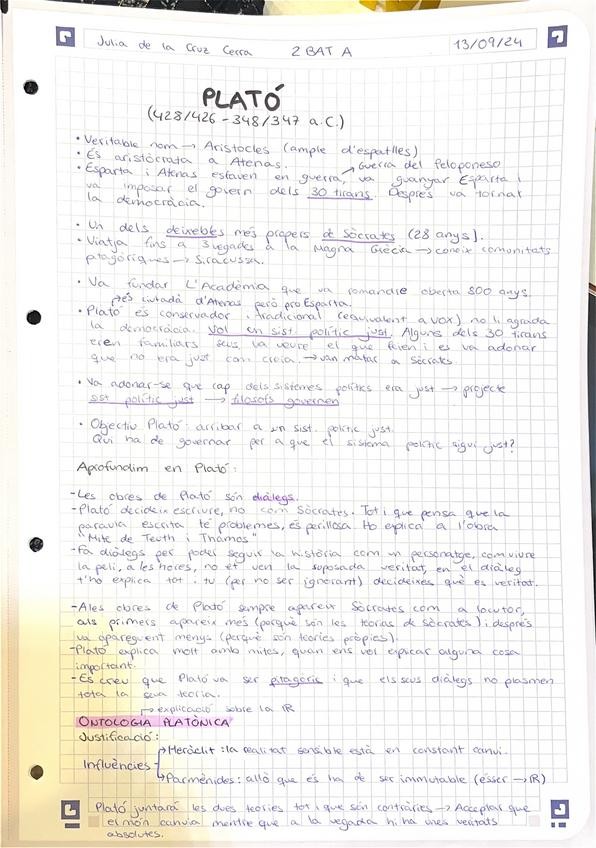 Julia de la Cruz Cerra 2 BAT A 13/09/24
PLATÓ
(428/426 - 348/347 a.C.)
• Veritable nom → Aristocles (ample d'espatlles)
• És aristòcrata a Atenas. → Guerra del Peloponeso
• Esparta i Atenas estaven en guerra, va guanyar Esparta i
va imposar el govern dels 30 tirans. Després va tornar
la democràcia.
• Un dels deixebles més propers de Sòcrates (28 anys).
• Viatja fins a 3 vegades a la Magna Grècia → coneix comunitats
pitagòriques → Siracussa.
• Va fundar L'Acadèmia que va romandre oberta 800 anys.
és ciutadà d'Atenas però pro Esparta.
• Plató és conservador i tradicional (equivalent a VOX) no li agrada
la democràcia. Vol un sist. polític just. Alguns dels 30 tirans
eren familiars seus, la veure el que feien i es va adonar
que no era just com creia. → van matar a Sòcrates.
• Va adonar-se que cap dels sistemes polítics era just → projecte
sist polític just → filosofs governen
• Objectiu Plató: arribar a un sist. polític just.
Qui ha de governar per a que el sistema polític sigui just?
Aprofundim en Plató:
- Les obres de Plató són diàlegs.
- Plató decideix escriure, no com Sòcrates. Tot i que pensa que la
paraula escrita té problemes, és perillosa. Ho explica a l'obra
"Mite de Teuth i Thamos"
- Fa diàlegs per poder seguir la història com un personatge, com viure
la peli, a les hores, no et ven la suposada veritat, en el diàleg
t'ho explica tot i tu (per no ser ignorant) decideixes què es veritat.
- A les obres de Plató sempre apareix Sòcrates com a locutor,
als primers apareix més (perquè són les teorias de sòcrates) i després
va apareguent menys (perquè són teories pròpies).
- Plató explica molt amb mites, quan ens vol explicar alguna cosa
important.
- Es creu que Plató va ser pitagòric i que els seus diàlegs no plasmen
tota la seua teoria.
→ explicació sobre la R
ONTOLOGIA PLATÒNICA
Justificació:
Influències → Heràclit: la realitat sensible està en constant canvi.
→ Parmènides: allò que és ha de ser immutable (ésser → R)
Plató juntarà les dues teories tot i que són contràries → Acceptar que
el món canvia mentre que a la vegada hi ha unes veritats
absolutes.